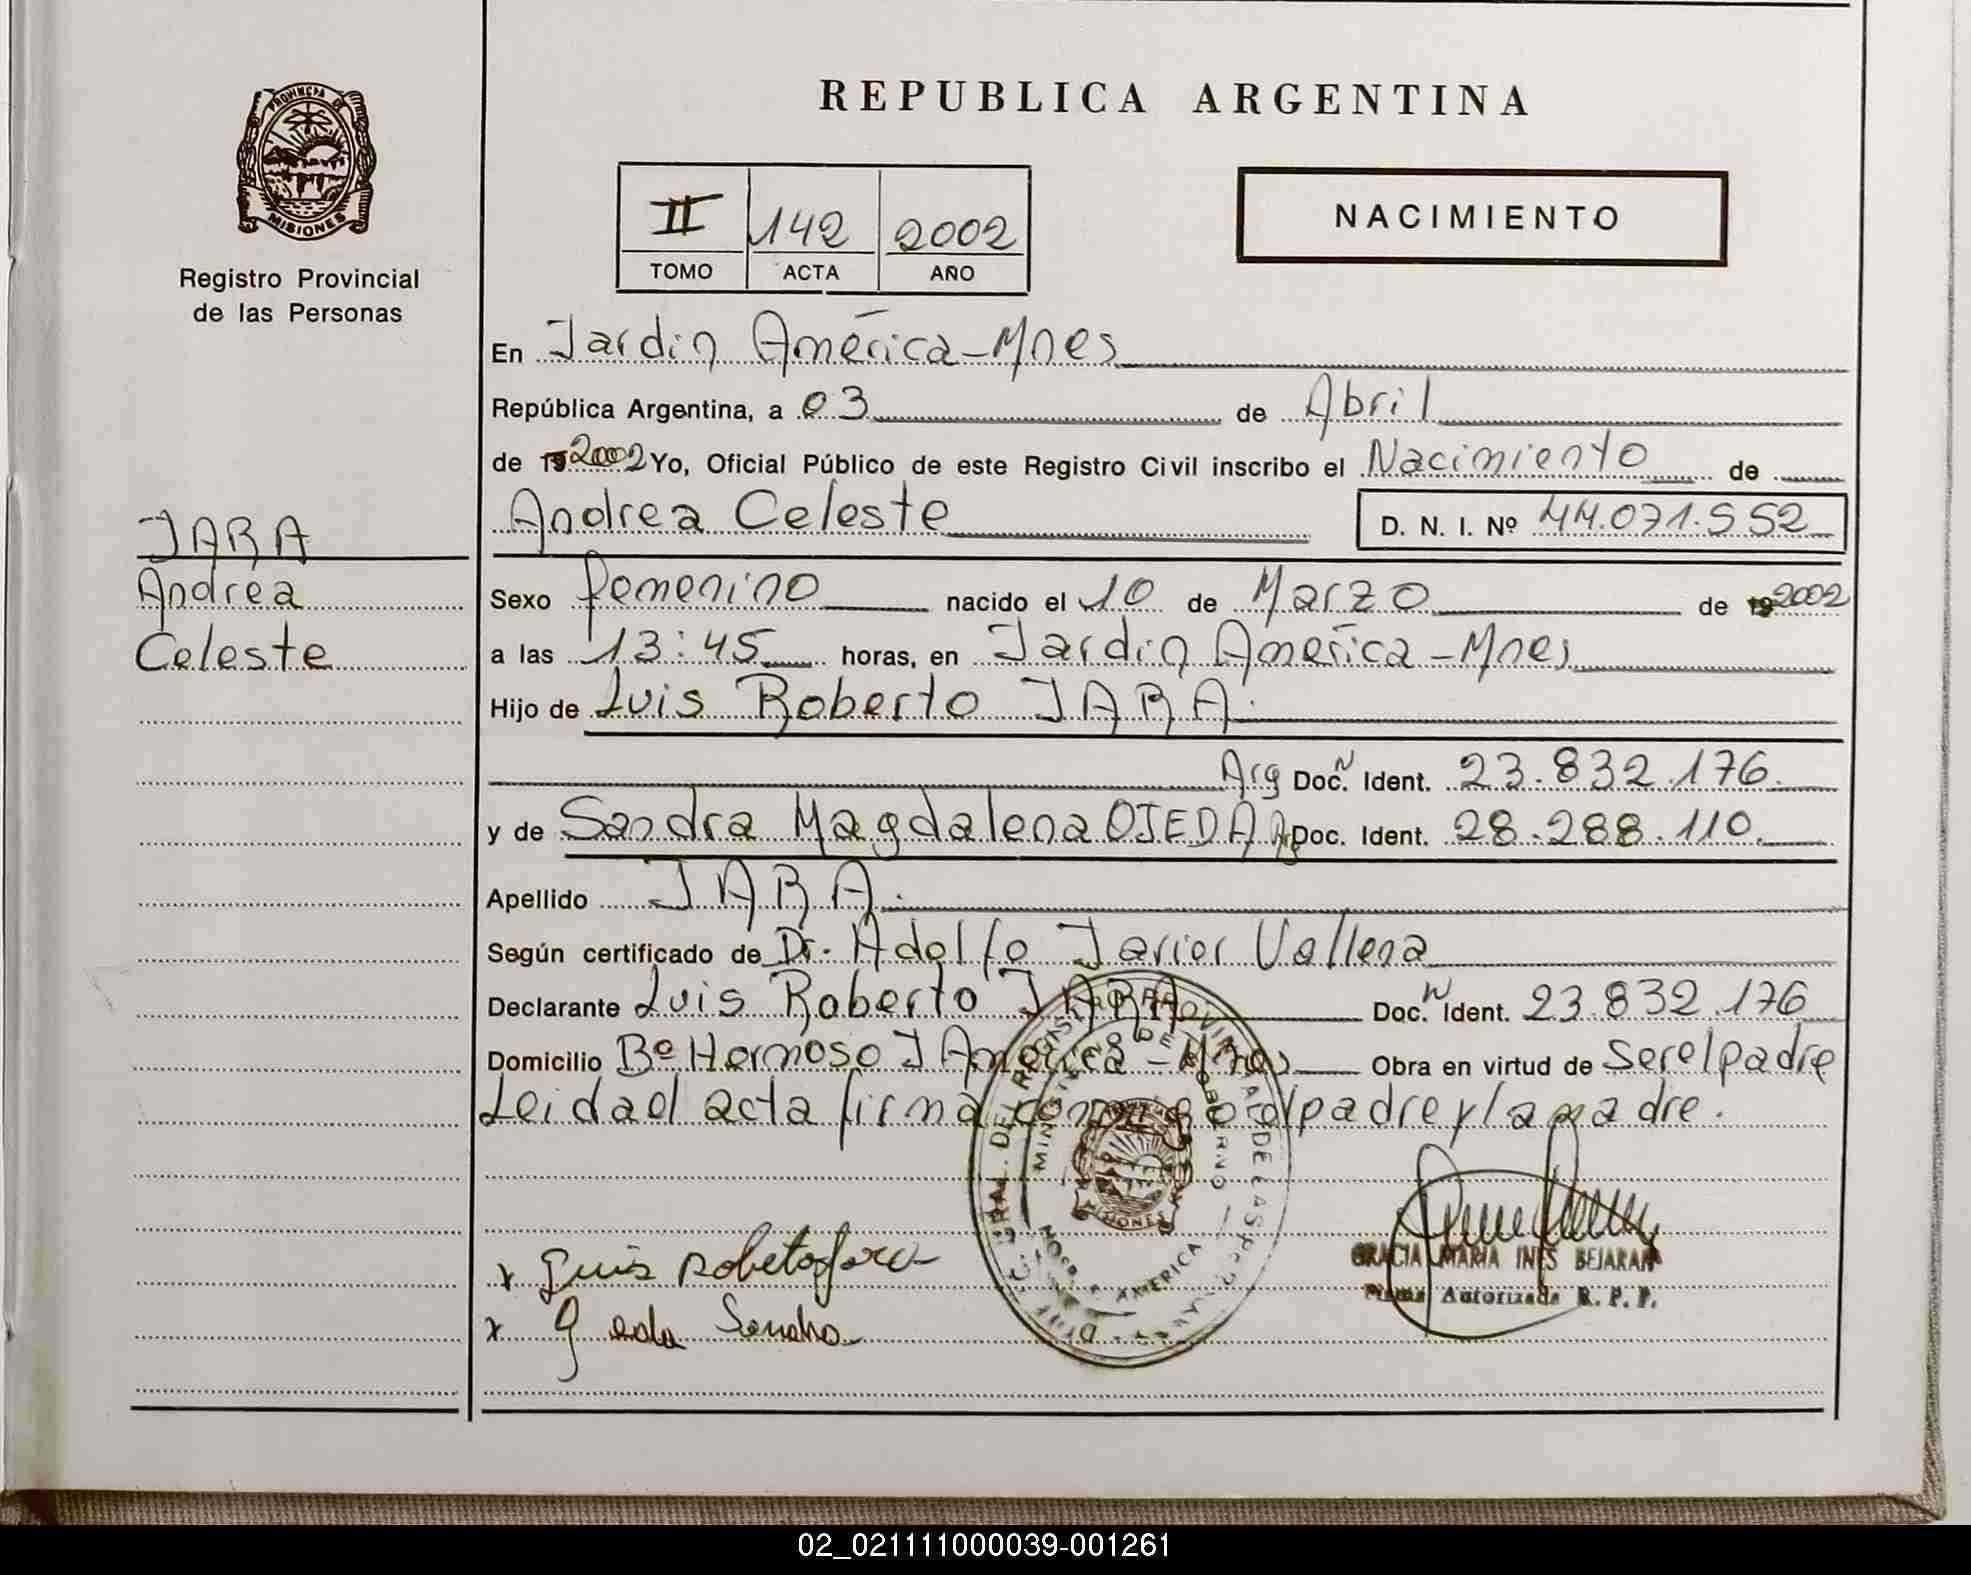 REPUBLICA ARGENTINA
PROVINCIA DE
MISIONES
Registro Provincial
de las Personas
II 142 2002
TOMO ACTA AÑO
NACIMIENTO
En Jardin América-Mnes
República Argentina, a 03 de Abril
de 19 2002 Yo, Oficial Público de este Registro Civil inscribo el Nacimiento de
Andrea Celeste D. N. I. Nº 44.071.552
JARA
Andrea
Celeste
Sexo femenino nacido el 10 de Marzo de 19 2002
a las 13:45 horas, en Jardin América-Mnes
Hijo de Luis Roberto JARA.
Arg Doc. N Ident. 23.832.176.
y de Sandra Magdalena OJEDA Arg Doc. Ident. 28.288.110.
Apellido JARA.
Según certificado de Dr. Adolfo Javier Vallena
Declarante Luis Roberto JARA Doc. N Ident. 23.832.176
Domicilio Bº Hermoso J América-Mnes Obra en virtud de Ser el padre
Leida el acta firma conmigo el padre y la madre.
MINISTERIO DE GOBIERNO
MISIONES
AMERICA
x Luis Robeto Jara
x Ojeda Sandra
GRACIA MARIA INES BEJARAN
Firma Autorizada R. P. P.
02_021111000039-001261